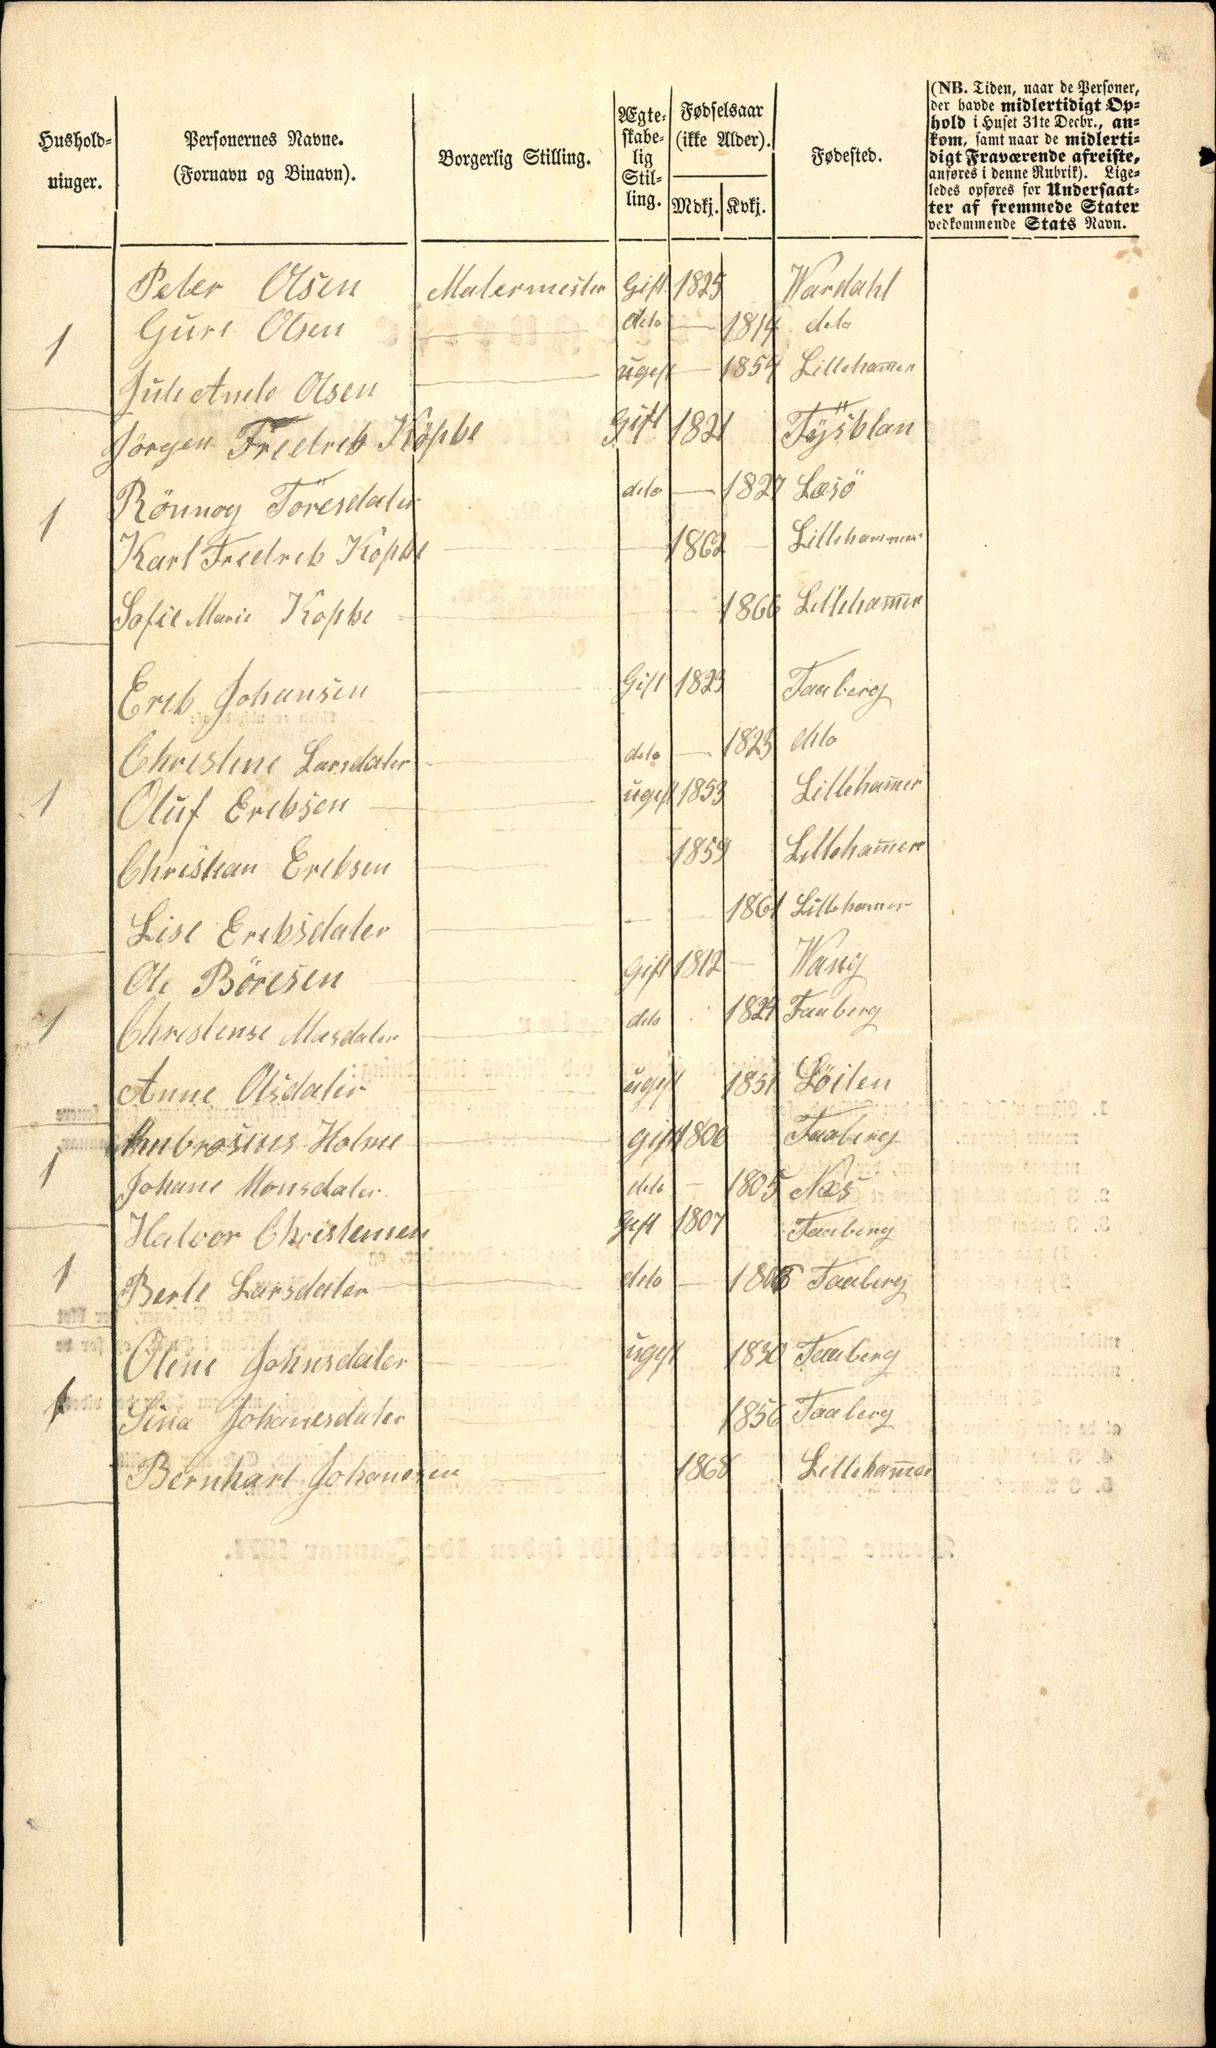 Hushold-
ninger.
Personernes Navne.
(Fornavn og Binavn).
Borgerlig Stilling.
Ægte-
skabe-
lig
Stil-
ling.
Fødselsaar
(ikke Alder).
Mdkj. Kvkj.
Fødested.
(NB. Tiden, naar de Personer,
der havde midlertidigt Op-
hold i Huset 31te Decbr., an-
kom, samt naar de midlerti-
digt Fraværende afreiste,
anføres i denne Rubrik). Lige-
ledes opføres for Undersaat-
ter af fremmede Stater
vedkommende Stats Navn.
Peter Olsen Malermester Gift 1825 Wardahl
1 Guri Olsen deto 1814 deto
Olsen ugift 1854 Lillehammer
Jörgen Fredrek Köpke Gift 1821 Tÿsklan
1 Rönnog Töresdater deto 1827 Læsö
Karl Fredrek Köpke 1862 Lillehammer
Sofie Marie Köpke 1866 Lillehammer
Erek Johansen Gift 1823 Faaberg
Christine Larsdater deto 1823 deto
1 Oluf Ereksen ugift 1853 Lillehammer
Christian Ereksen 1859 Lillehammer
Lise Ereksdater 1861 Lillehamer
Ole Böresen Gift 1812 Wang
1 Christense Masdater deto 1824 Faaberg
Anne Olsdater ugift 1851 Löiten
Ambrosius Holme Gift 1806 Faaberg
1 Johane Monsdater deto 1805 Næs
Halvor Christensen Gift 1807 Faaberg
1 Berte Larsdater deto 1806 Faaberg
Oline Johnsdater ugift 1830 Faaberg
1 Sina Johanesdater 1856 Faaberg
Bernhart Johanesen 1868 Lillehammer